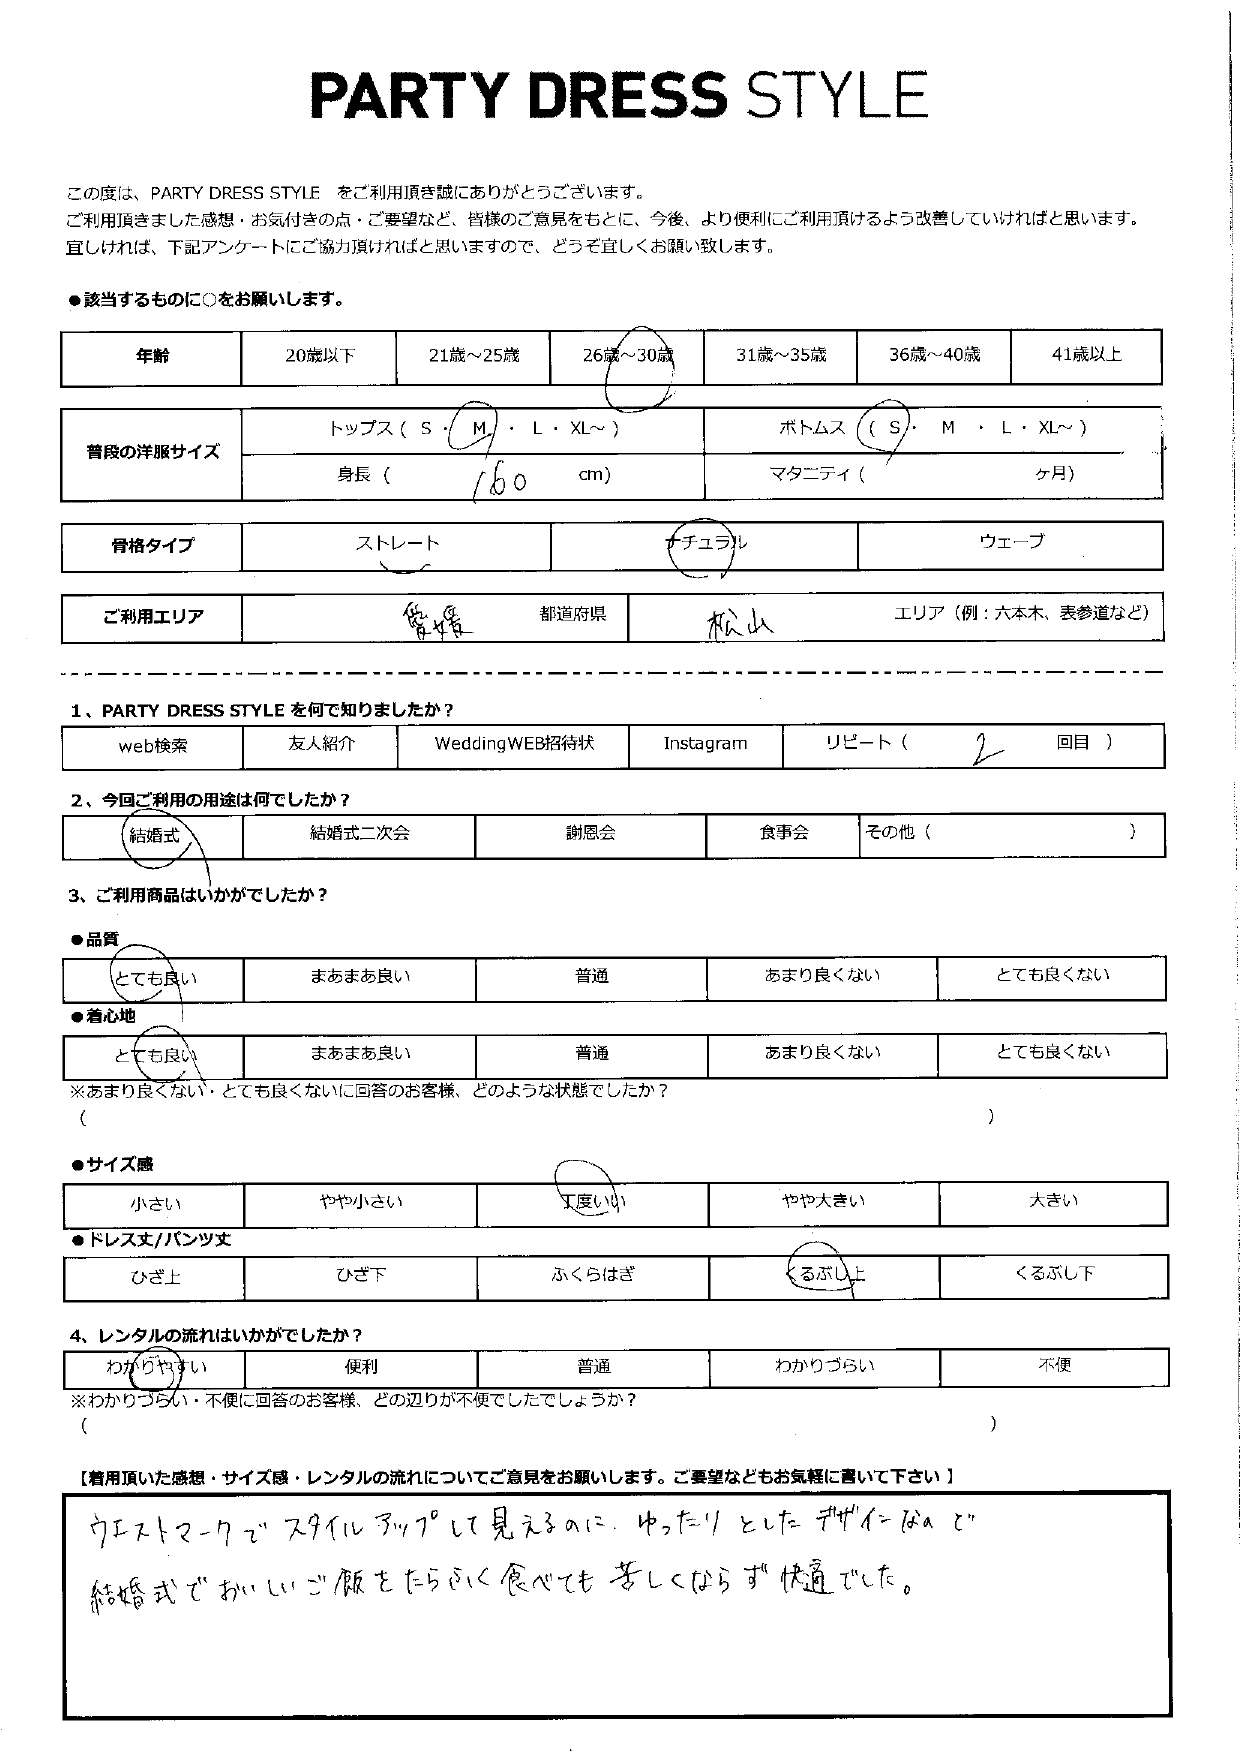 PARTY DRESS STYLE
この度は、PARTY DRESS STYLE をご利用頂き誠にありがとうございます。
ご利用頂きました感想・お気付きの点・ご要望など、皆様のご意見をもとに、今後、より便利にご利用頂けるよう改善していければと思います。
宜しければ、下記アンケートにご協力頂ければと思いますので、どうぞ宜しくお願い致します。
●該当するものに○をお願いします。
年齢 20歳以下 21歳～25歳 26歳～30歳 31歳～35歳 36歳～40歳 41歳以上
普段の洋服サイズ トップス ( S ・ M ・ L ・ XL～ ) ボトムス ( S ・ M ・ L ・ XL～ )
身長 ( 160 cm) マタニティ ( ヶ月)
骨格タイプ ストレート ナチュラル ウェーブ
ご利用エリア 愛媛 都道府県 松山 エリア（例：六本木、表参道など）
1、PARTY DRESS STYLE を何で知りましたか？
web検索 友人紹介 WeddingWEB招待状 Instagram リピート ( 2 回目 )
2、今回ご利用の用途は何でしたか？
結婚式 結婚式二次会 謝恩会 食事会 その他 ( )
3、ご利用商品はいかがでしたか？
●品質
とても良い まあまあ良い 普通 あまり良くない とても良くない
●着心地
とても良い まあまあ良い 普通 あまり良くない とても良くない
※あまり良くない・とても良くないに回答のお客様、どのような状態でしたか？
( )
●サイズ感
小さい やや小さい 丁度いい やや大きい 大きい
●ドレス丈/パンツ丈
ひざ上 ひざ下 ふくらはぎ くるぶし上 くるぶし下
4、レンタルの流れはいかがでしたか？
わかりやすい 便利 普通 わかりづらい 不便
※わかりづらい・不便に回答のお客様、どの辺りが不便でしたでしょうか？
( )
【着用頂いた感想・サイズ感・レンタルの流れについてご意見をお願いします。ご要望などもお気軽に書いて下さい】
ウエストマークで スタイルアップして見えるのに、ゆったりとしたデザインなので
結婚式でおいしいご飯をたらふく食べても苦しくならず快適でした。